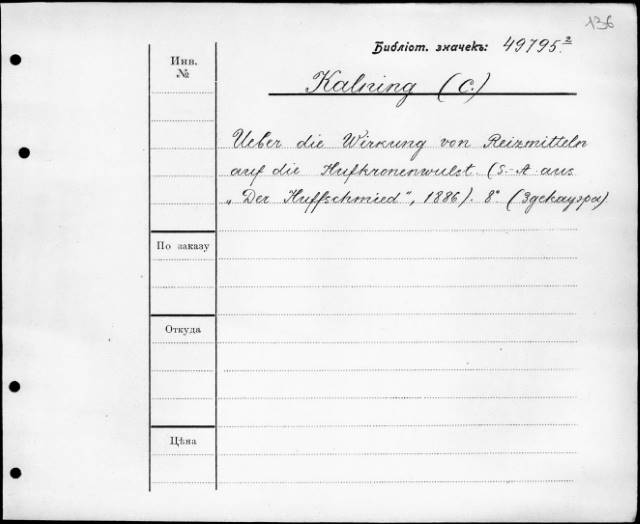 136
Библіот. значекъ: 49795.²
Инв.
№
Kalning (C.)
Ueber die Wirkung von Reizmitteln
auf die Hufkronenwulst. (S.-A. aus
„Der Huffschmied", 1886). 8° (Здекауэра)
По заказу
Откуда
Цѣна